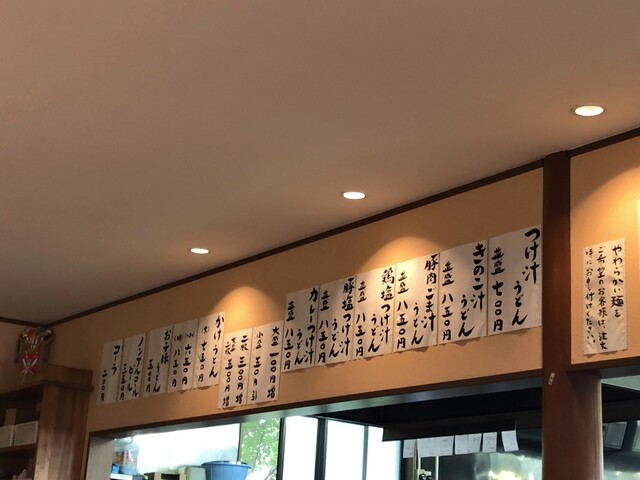 つけ汁
うどん
並盛 七〇〇
きのこ汁
うどん
並盛 八五〇
豚肉ごま汁
うどん
並盛 八五〇
鶏塩つけ汁
うどん
並盛 八五〇
豚塩つけ汁
うどん
並盛 八五〇
カレーつけ汁
うどん
並盛 八五〇
大盛 一〇〇円増
五〇円引
三〇〇円増
五〇円増
かけうどん
(大) 七五〇円
六五〇円
八五〇円
お子様
うどん
やわらかい麺を
ご希望のお客様は、注文
時にお申し付けください。